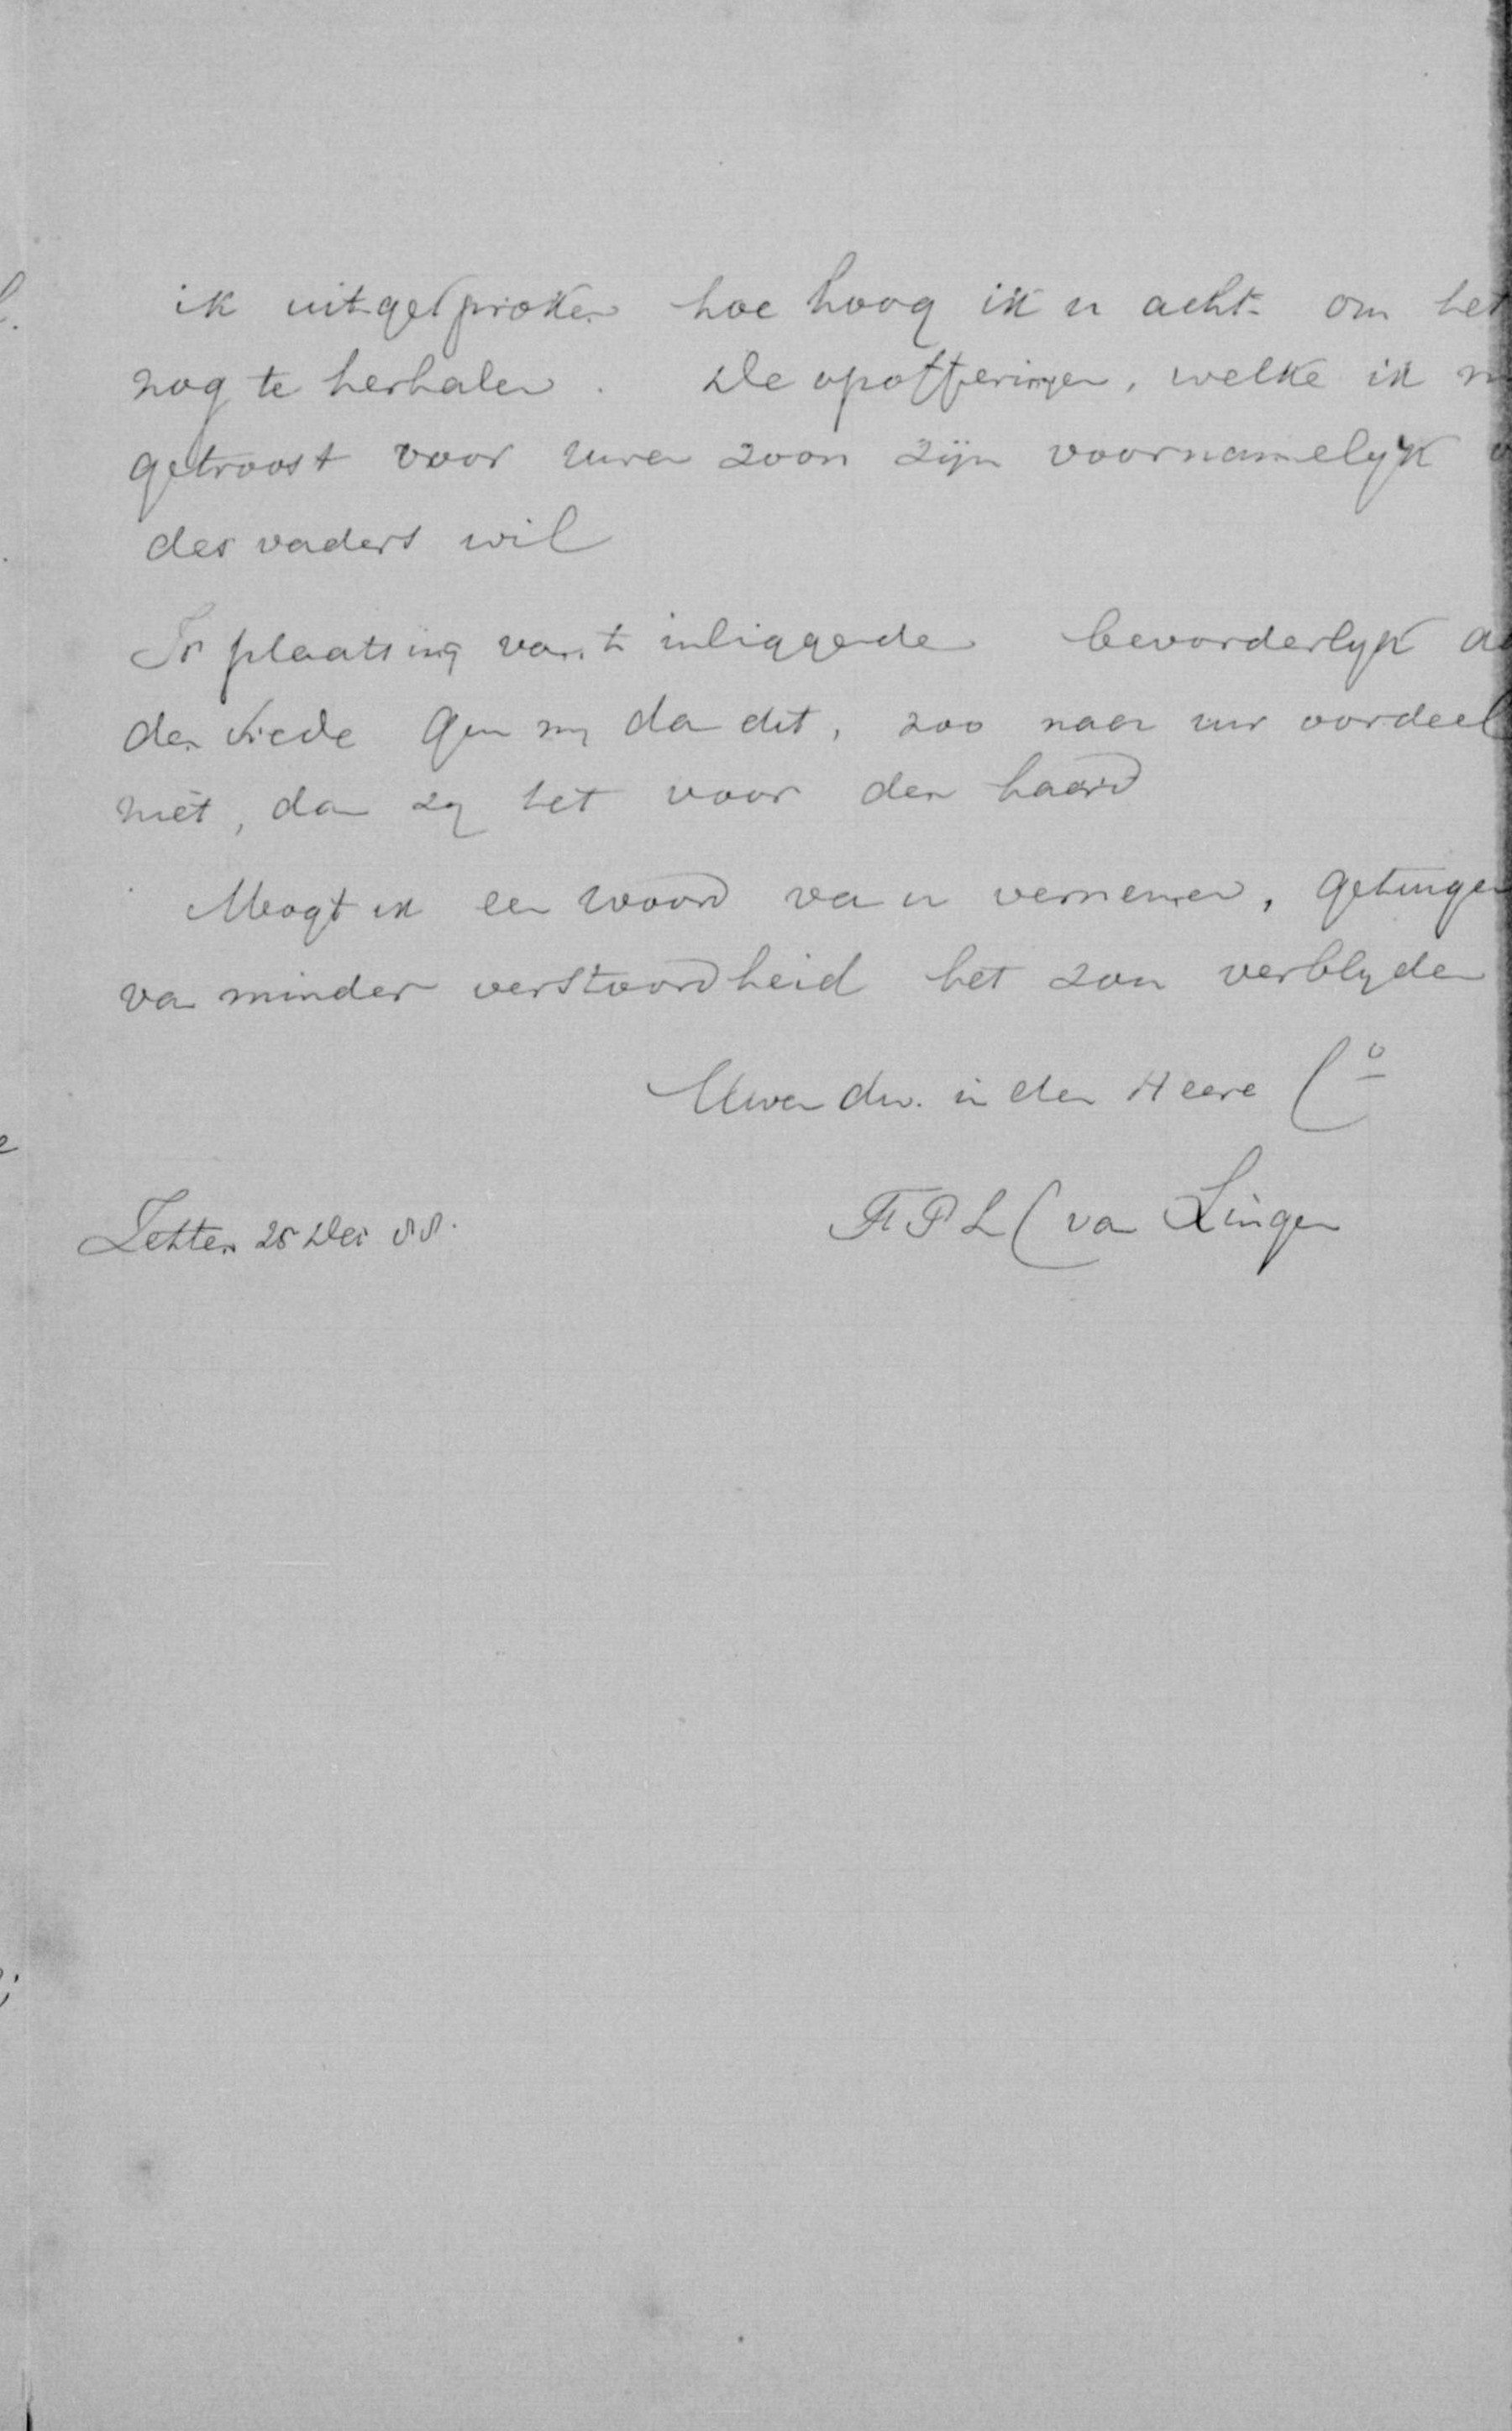 ik uitgesproken hoe hoog ik u acht om het
nog te herhalen. De opofferingen, welke ik
getroost voor uwen zoon zijn voornamelyk
des vaders wil
Is plaatsing van 't inliggende bevorderlyk
den vrede Gun my dan dit, zoo naar uw oordeel
niet, dan zy het voor den haard
Mogt ik een woord van u vernemen, getuigen
van minder verstoordheid het zou verblyden
Uwen dw. in den Heere
FPL C van Lingen
Zetten 25 Dec 88.